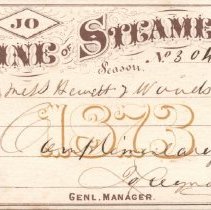 JO
INE OF STEAME
Season. No 304
mess Hewett & Woods
1873
Complimentary
GENL, MANAGER.